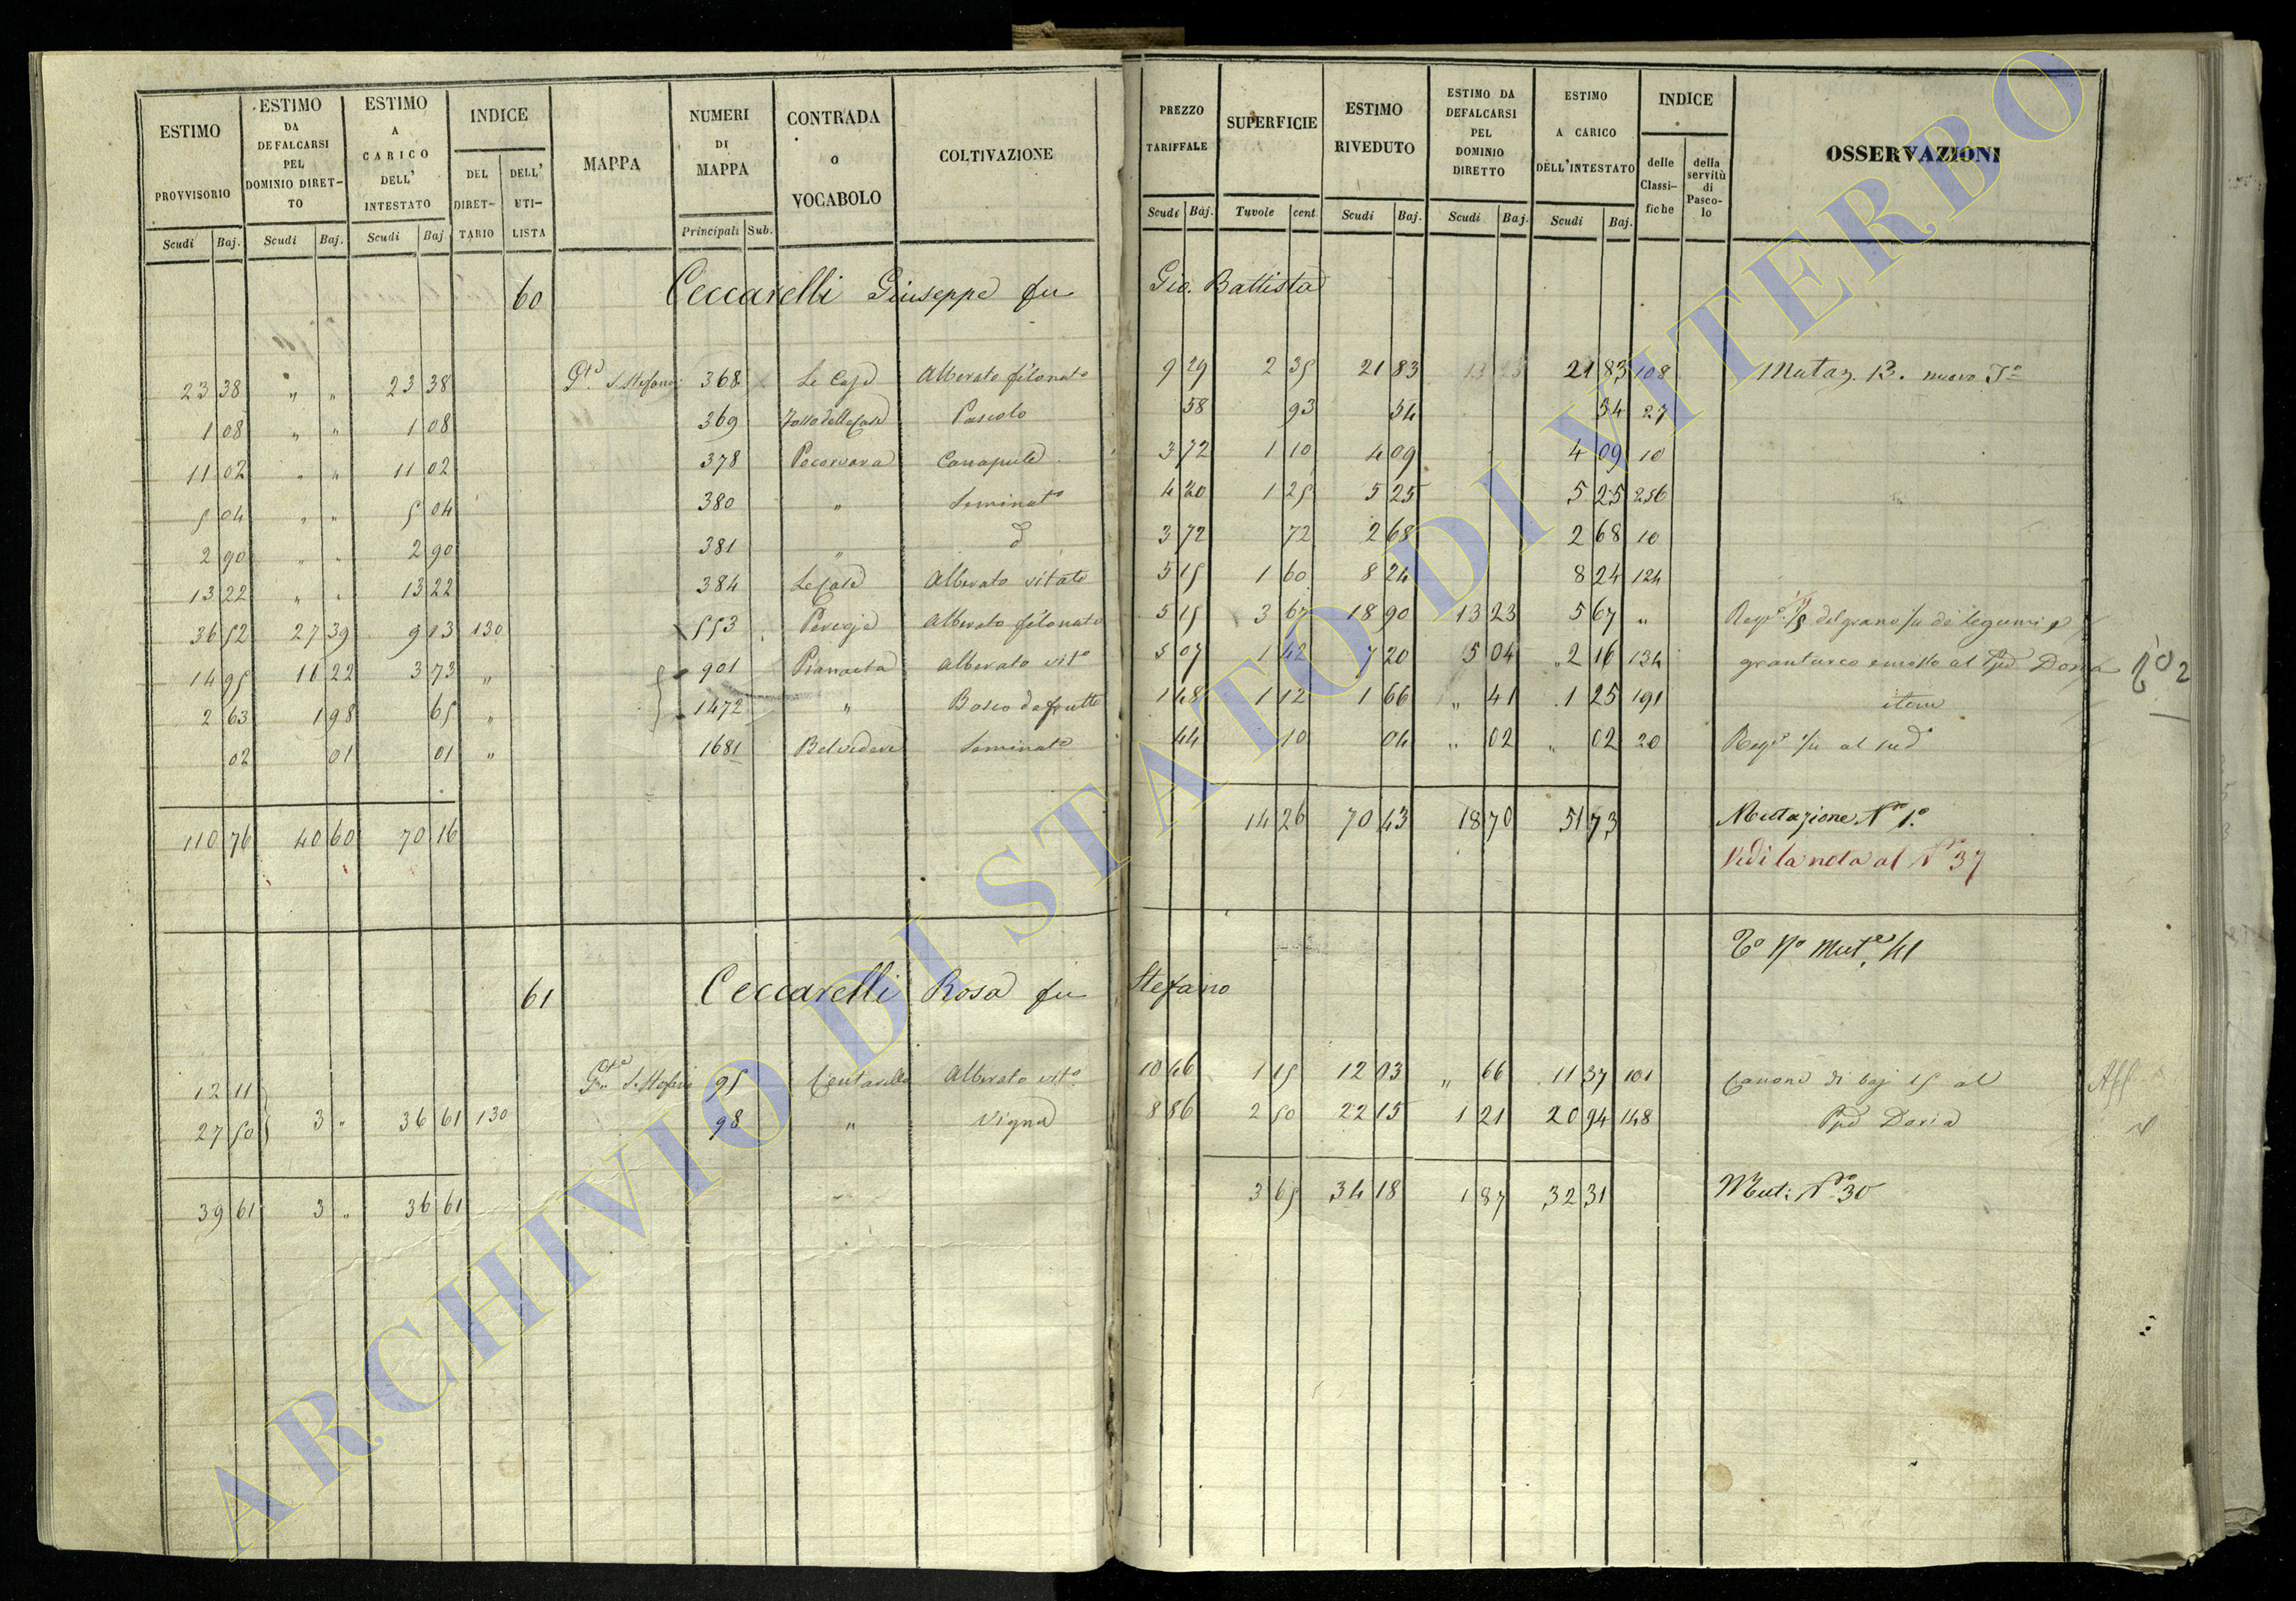 ESTIMO PROVVISORIO Scudi Baj.
ESTIMO DA DEFALCARSI PEL DOMINIO DIRET- TO Scudi Baj.
ESTIMO A CARICO DELL' INTESTATO Scudi Baj.
INDICE DEL DIRET- TARIO DELL' UTI- LISTA
MAPPA
NUMERI DI MAPPA Principali Sub.
CONTRADA O VOCABOLO
COLTIVAZIONE
PREZZO TARIFFALE Scudi Baj.
SUPERFICIE Tavole cent.
ESTIMO RIVEDUTO Scudi Baj.
ESTIMO DA DEFALCARSI PEL DOMINIO DIRETTO Scudi Baj.
ESTIMO A CARICO DELL'INTESTATO Scudi Baj.
INDICE delle Classi- fiche della servitù di Pasco- lo
OSSERVAZIONI
60 Ceccarelli Giuseppe fu Gio. Battista
23 38 " " 23 38 S. Stefano 368 Le Case Alberato filonato 9 29 2 35 21 83 13 23 21 83 108 Mutaz. 13. nuovo
1 08 " " 1 08 369 Pascolo 58 93 54 54 27
11 02 " " 11 02 378 Canapule 3 72 1 10 4 09 4 09 10
5 04 " " 5 04 380 " Seminato 4 20 1 25 5 25 5 25 256
2 90 " " 2 90 381 " d 3 72 72 2 68 2 68 10
13 22 " " 13 22 384 Le Case Alberato vitato 5 15 1 60 8 24 8 24 124
36 52 27 39 9 13 130 553 Alberato filonato 5 15 3 67 18 90 13 23 5 67 " del grano di legumi e
14 95 11 22 3 73 " 901 Alberato vito 5 07 1 42 7 20 5 04 " 2 16 134 granturco al Doria
2 63 1 98 65 " 1472 " Bosco da frutto 1 48 1 12 1 66 " 41 1 25 191 item
02 01 01 " 1681 Belvedere Seminato 44 10 04 " 02 " 02 20 al sudo
110 76 40 60 70 16 14 26 70 43 18 70 51 73 Mutazione No 1.o
Vedi la nota al No 37
61 Ceccarelli Rosa fu Stefano
12 11 S. Stefano 95 Centarella Alberato vito 10 46 1 15 12 03 " 66 11 37 101 Canone di baj 15 al
27 50 3 " 36 61 130 98 " Vigna 8 86 2 50 22 15 1 21 20 94 148 Doria
39 61 3 " 36 61 3 65 34 18 1 87 32 31 Mut: No 30
ARCHIVIO DI STATO DI VITERBO